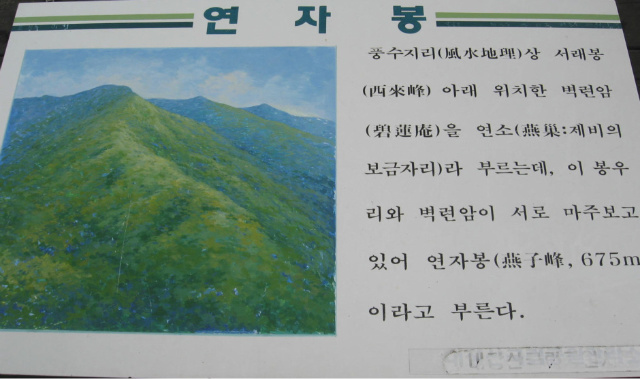 연 자 봉
풍수지리(風水地理)상 서래봉
(西來峰) 아래 위치한 벽련암
(碧蓮庵)을 연소(燕巢:제비의
보금자리)라 부르는데, 이 봉우
리와 벽련암이 서로 마주보고
있어 연자봉(燕子峰, 675m
이라고 부른다.